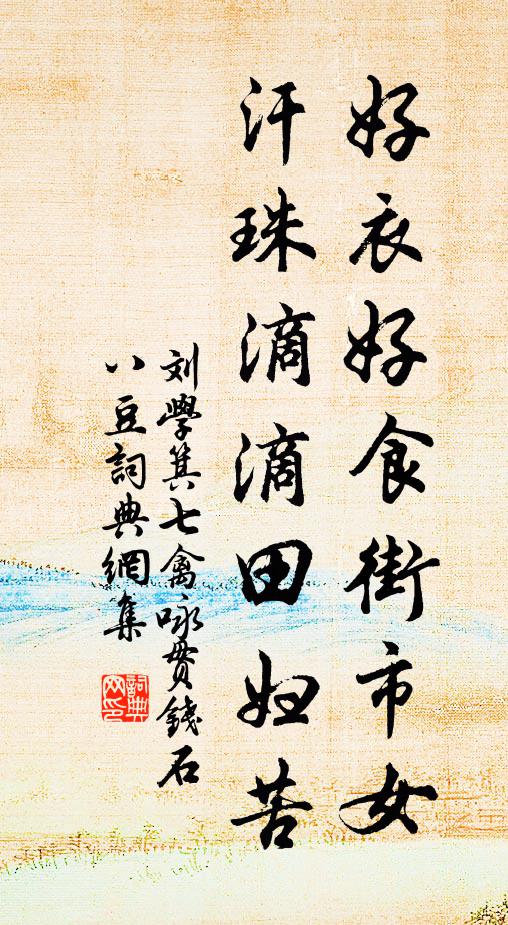 好衣好食街市女
汗珠滴滴田妇苦
刘學箕七禽咏貫錢石
八豆詞典網集
詞典
网印